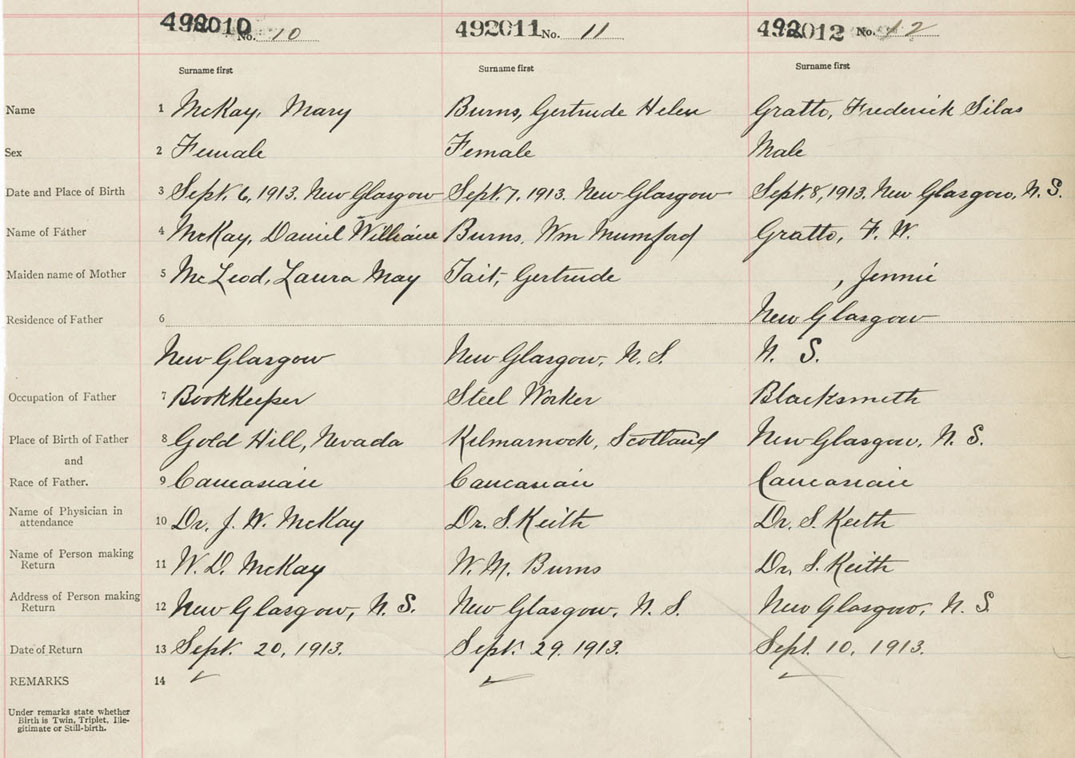 492010 No. 10 492011 No. 11 492012 No. 12
Surname first Surname first Surname first
Name 1 McKay, Mary Burns, Gertrude Helen Gratto, Frederick Silas
Sex 2 Female Female Male
Date and Place of Birth 3 Sept. 6, 1913. New Glasgow Sept. 7, 1913. New Glasgow Sept. 8, 1913. New Glasgow, N. S.
Name of Father 4 McKay, Daniel William Burns, Wm Mumford Gratto, F. W.
Maiden name of Mother 5 McLeod, Laura May Tait, Gertrude , Jennie
Residence of Father 6 New Glasgow
New Glasgow New Glasgow, N. S. N. S.
Occupation of Father 7 BookKeeper Steel Worker Blacksmith
Place of Birth of Father 8 Gold Hill, Nevada Kilmarnock, Scotland New Glasgow, N. S.
and
Race of Father. 9 Caucasian Caucasian Caucasian
Name of Physician in
attendance 10 Dr. J. W. McKay Dr. S. Keith Dr. S. Keith
Name of Person making
Return 11 W. D. McKay W. M. Burns Dr. S. Keith
Address of Person making
Return 12 New Glasgow, N. S. New Glasgow, N. S. New Glasgow, N. S.
Date of Return 13 Sept. 20, 1913. Sept. 29. 1913. Sept. 10, 1913.
REMARKS 14
Under remarks state whether
Birth is Twin, Triplet, Ille-
gitimate or Still-birth.